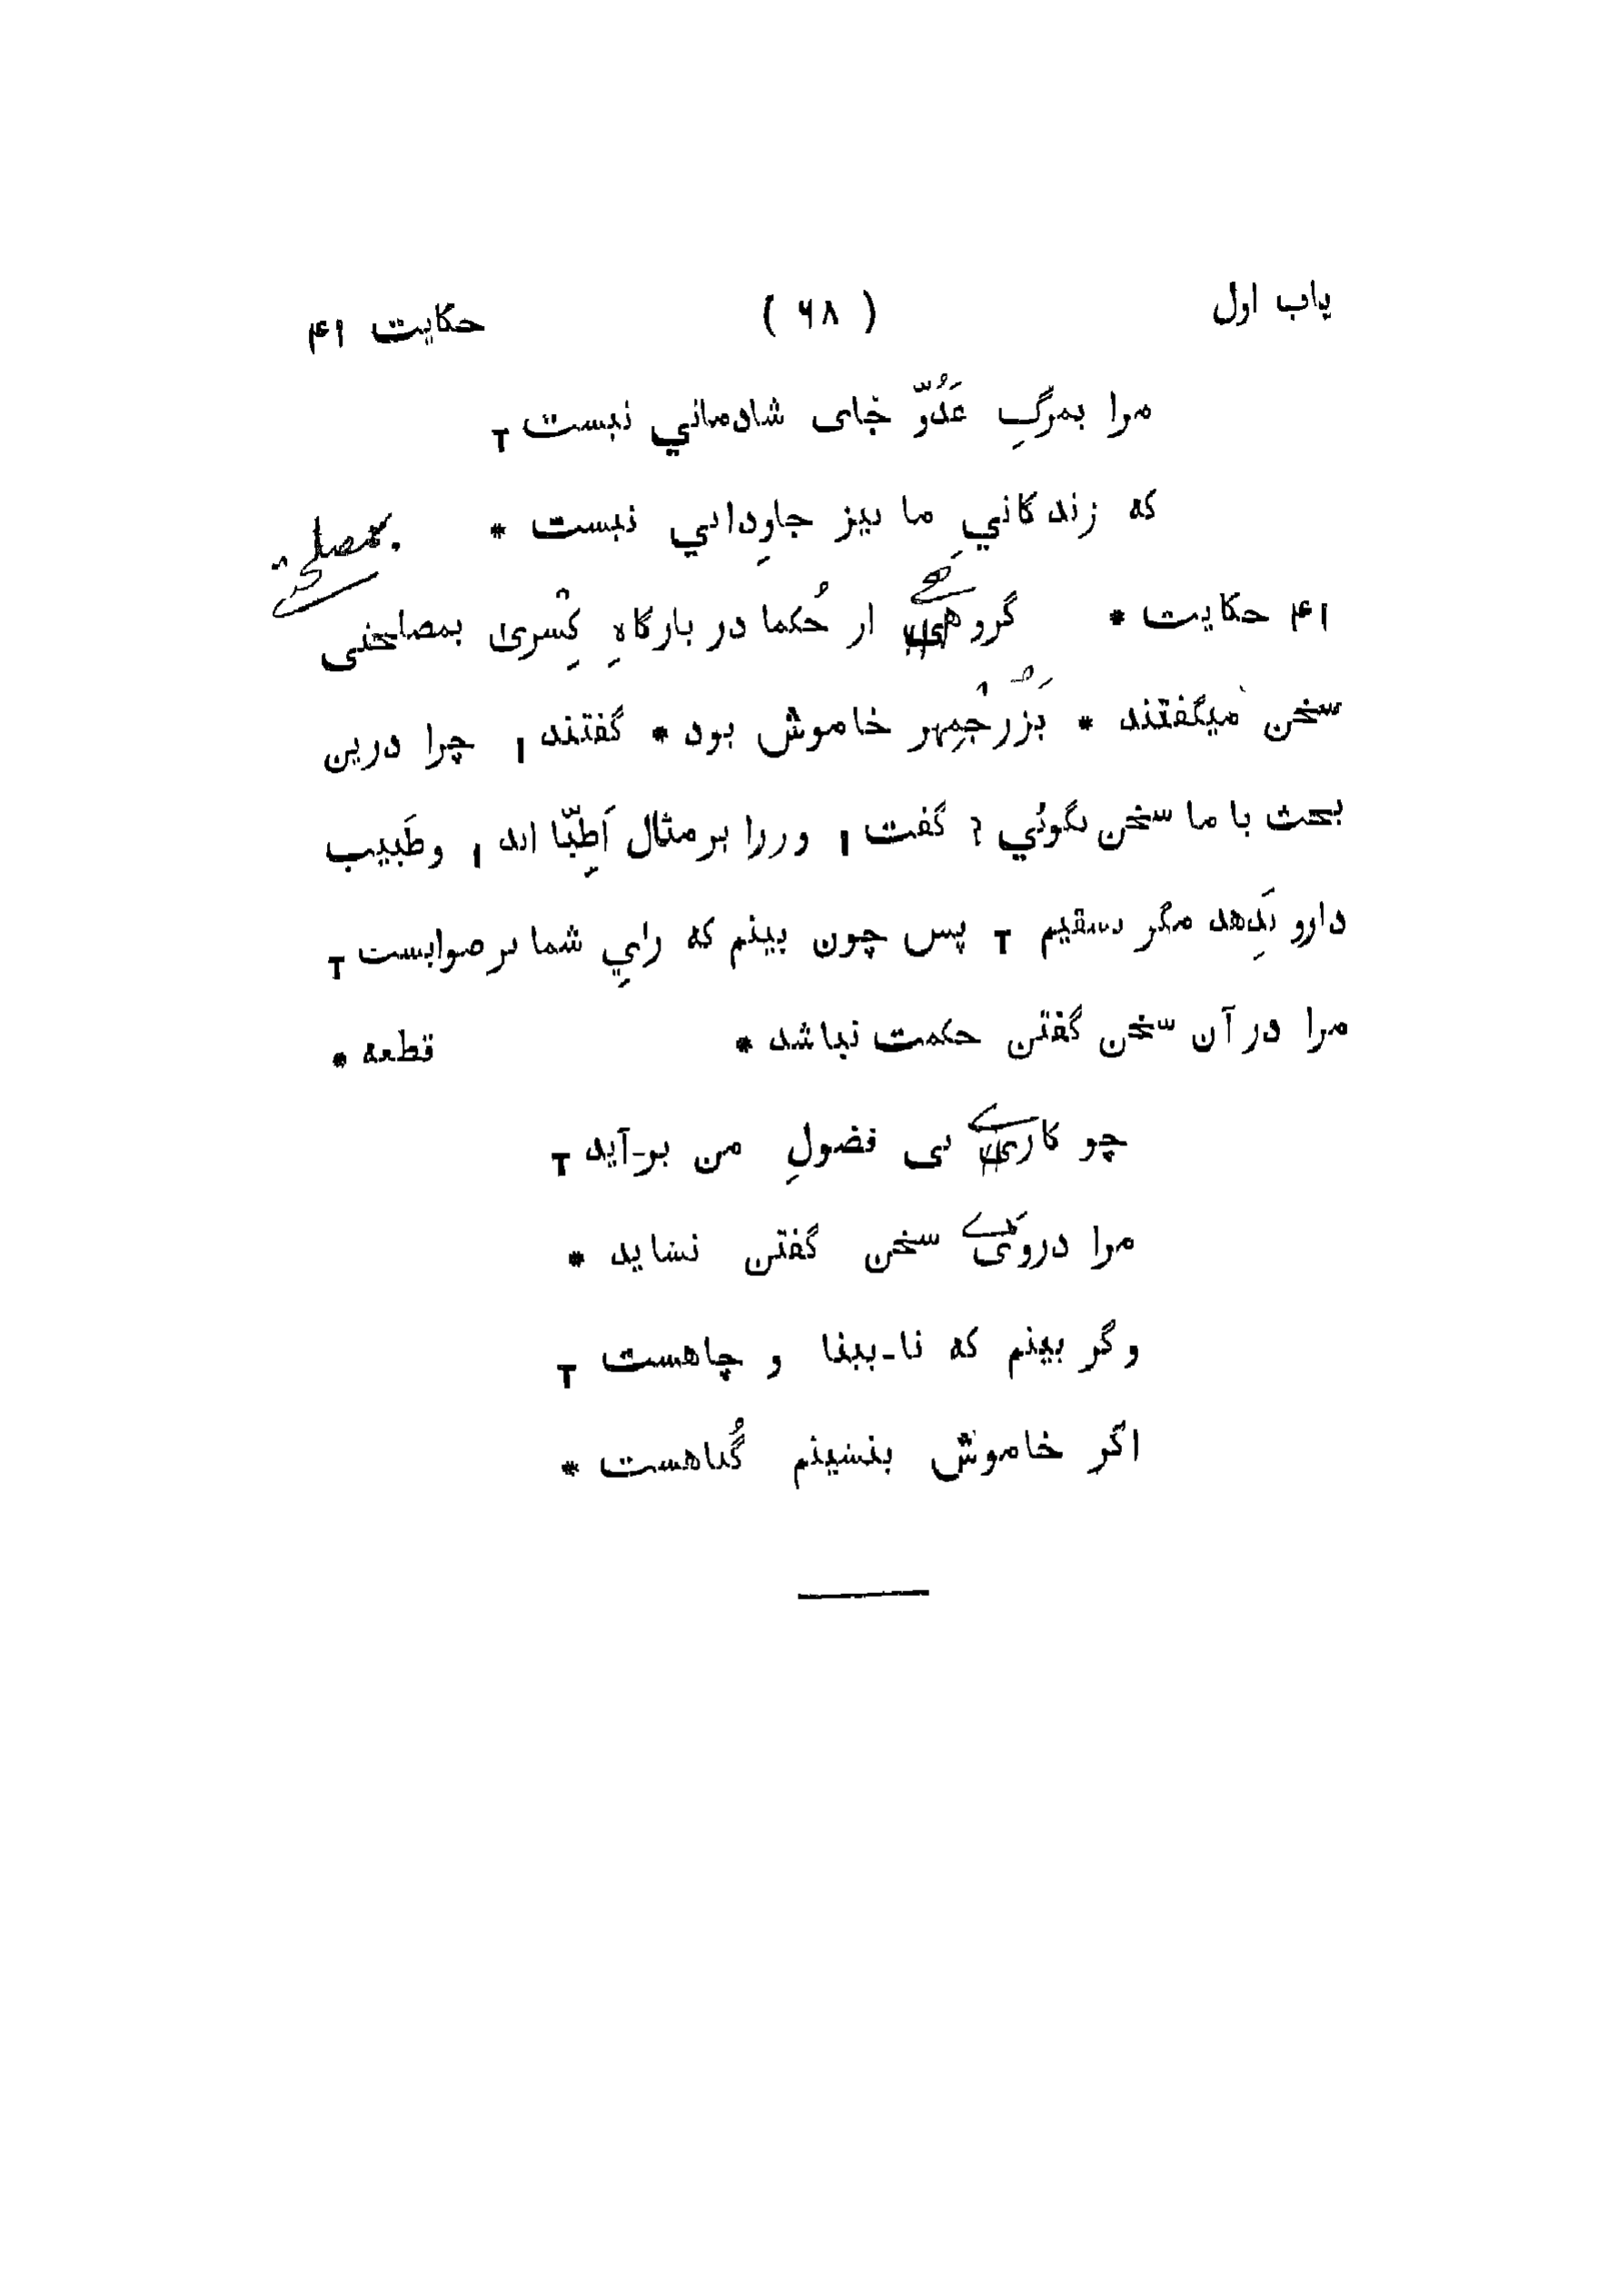 باب اول ( ۶۸ ) حکایت ۴۱
مرا بمرگِ عَدُوّ جای شادماني نیست T
که زندگاني ما نیز جاوِداني نیست *
بمصلحتے
۴۱ حکایت * گروهی از حُکما در بارگاهِ کِسْریٰ بمصلحتی
سخن میگفتند * بُزُرْجْمِهر خاموش بود * گفتند ا چرا درین
بحث با ما سخن نگوئي ? گفت ا وزرا بر مثال اَطِبّا اند ا و طَبیب
دارو نَدِهد مگر بسقیم T پس چون بینم که رايِ شما بر صوابست T
مرا در آن سخن گفتن حکمت نباشد * قطعه *
چو کارے بی فضولِ من بر-آید T
مرا دروَے سخن گفتن نشاید *
وگر بینم که نا-بینا و چاهست T
اگر خاموش بنشینم گُناهست *